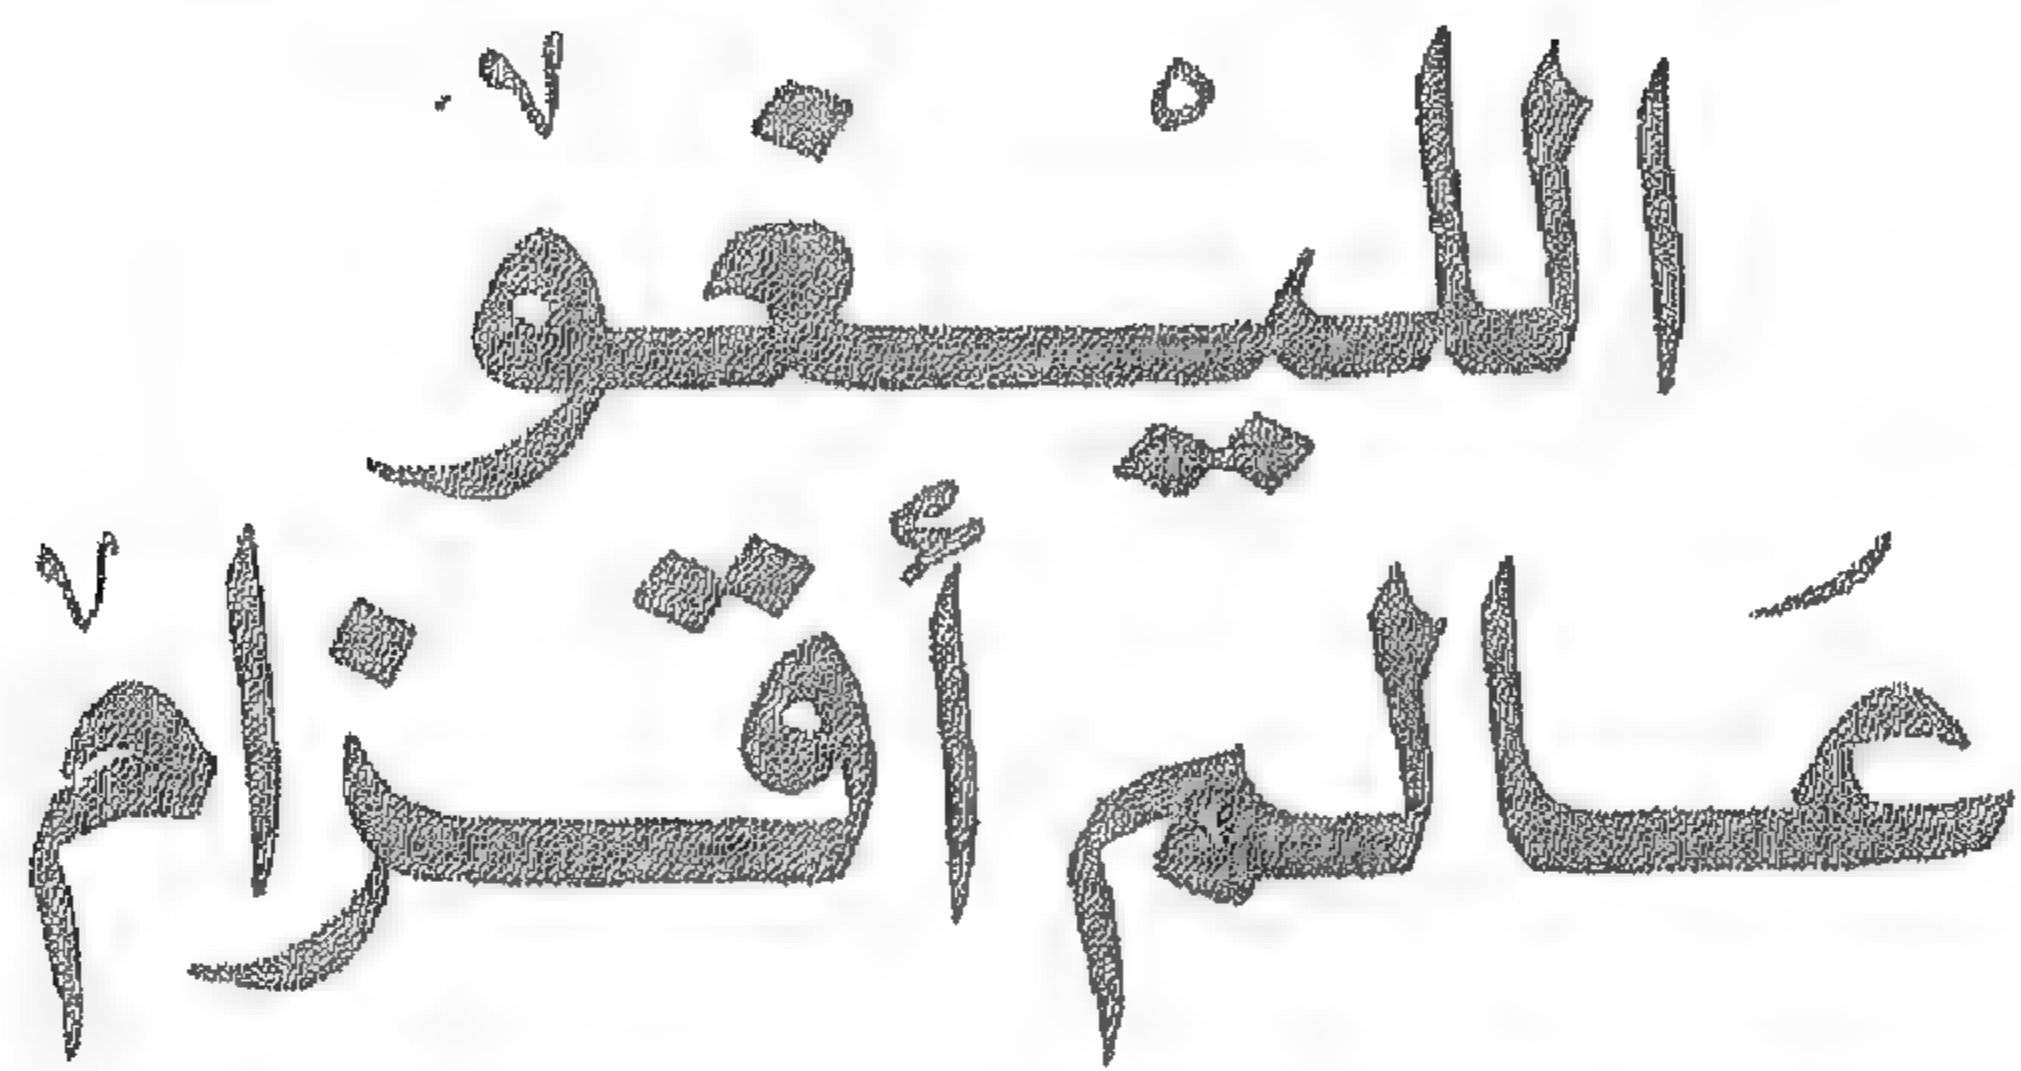 الليـغو
عَـالم أقـزام